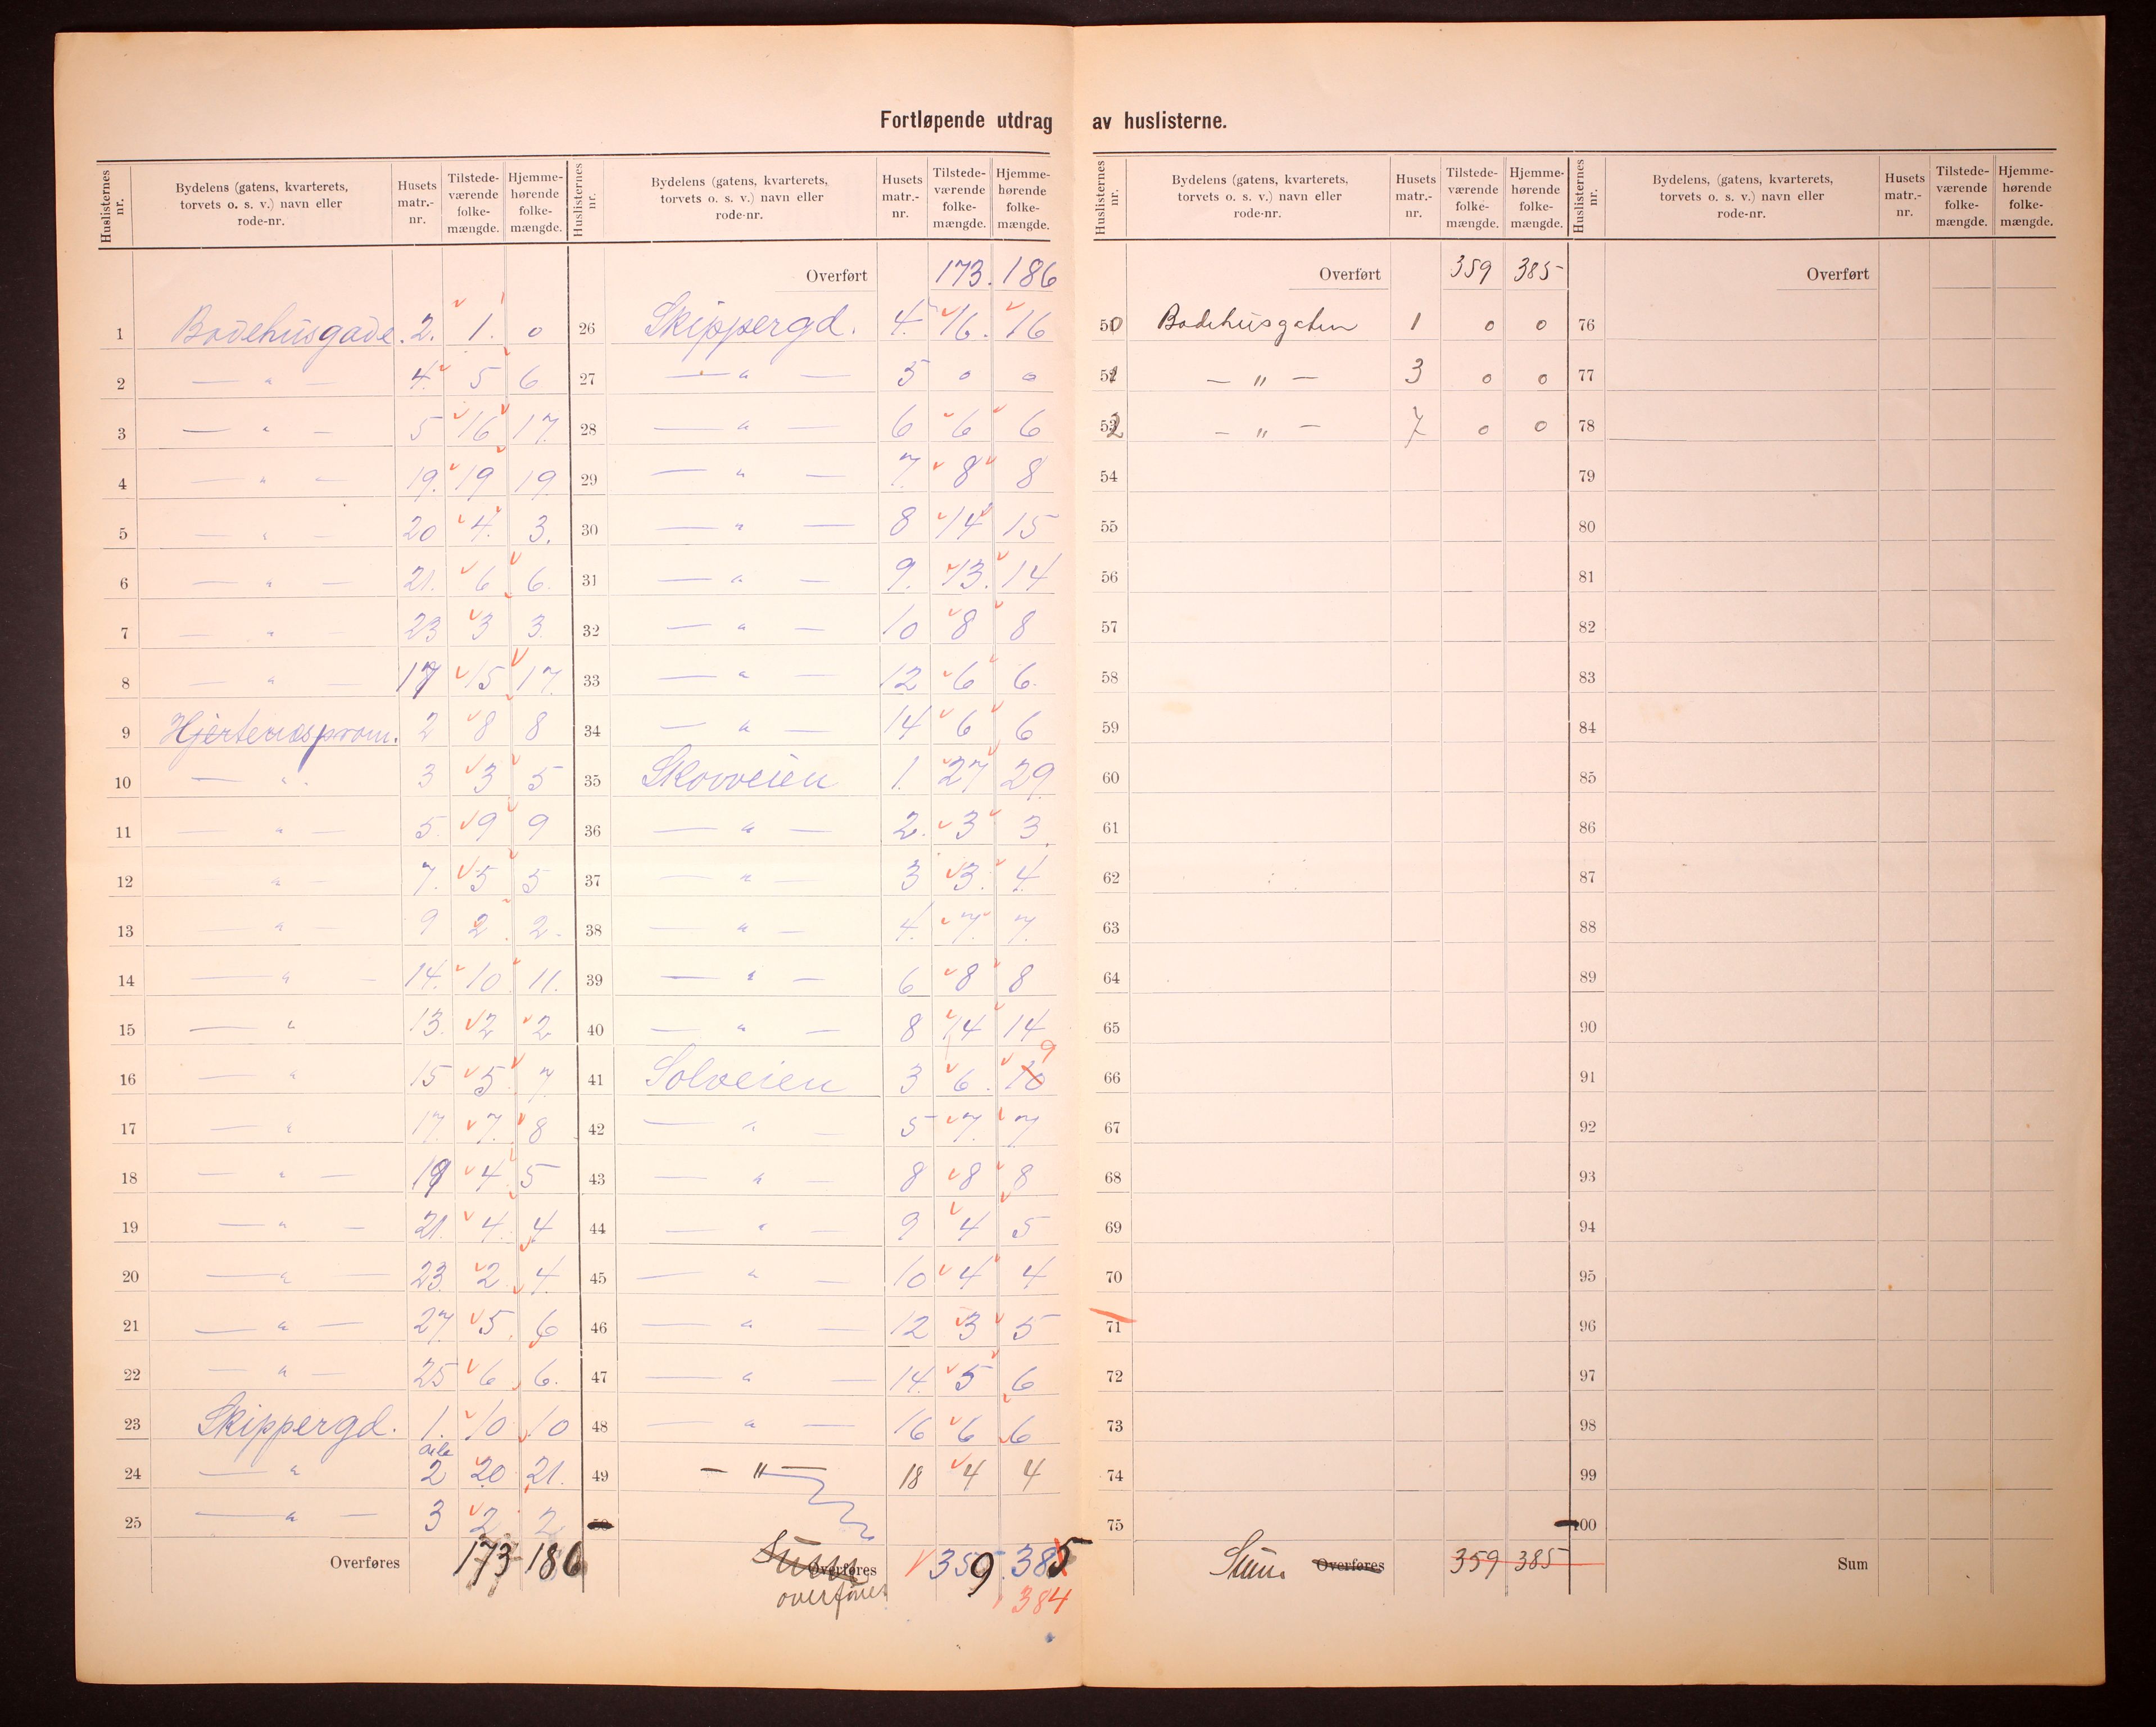 Fortløpende utdrag av huslisterne.
Huslisternes nr. Bydelens (gatens, kvarterets, torvets o. s. v.) navn eller rode-nr. Husets matr.-nr. Tilstede-værende folke-mængde. Hjemme-hørende folke-mængde.
1 Bødehusgade. 2. 1. 0
2 — " — 4. 5 6
3 — " — 5 16 17.
4 — " — 19. 19 19
5 — " — 20 4. 3.
6 — " — 21. 6 6.
7 — " — 23 3 3.
8 — " — 17 15 17.
9 Hjertenesprom. 2 8 8
10 — " 3 3 5
11 — " — 5. 9 9
12 — " — 7. 5 5
13 — " — 9 2 2.
14 — " — 14. 10 11.
15 — " 13. 2 2
16 — " 15 5. 7.
17 — " 17. 7. 8
18 — " — 19 4 5
19 — " — 21. 4. 4
20 — " — 23. 2 4.
21 — " — 27. 5. 6
22 — " — 25 6 6.
23 Skippergd. 1. 10 10
24 — " 2 20 21.
25 — " — 3 2 2
Overføres 173 186
Huslisternes nr. Bydelens (gatens, kvarterets, torvets o. s. v.) navn eller rode-nr. Husets matr.-nr. Tilstede-værende folke-mængde. Hjemme-hørende folke-mængde.
Overført 173. 186
26 Skippergd. 4. 16. 16
27 — " — 5 0 0
28 — " — 6 6 6
29 — " — 7. 8 8
30 — " — 8 14 15
31 — " — 9. 13. 14
32 — " — 10 8 8
33 — " — 12 6 6.
34 — " — 14 6 6
35 Skovveien 1. 27 29.
36 — " — 2. 3 3.
37 — " — 3 3. 4.
38 — " — 4. 7. 7.
39 — " — 6 8 8
40 — " — 8 14 14
9
41 Solveien 3 6. 10
42 — " — 5 7. 7
43 — " — 8 8 8
44 — " — 9 4 5
45 — " — 10 4 4
46 — " — 12 3 5
47 — " — 14. 5 6
48 — " — 16 6 6
49 — " — 18 4 4
50
Summa Overføres 359. 385
overføres 384
Huslisternes nr. Bydelens (gatens, kvarterets, torvets o. s. v.) navn eller rode-nr. Husets matr.-nr. Tilstede-værende folke-mængde. Hjemme-hørende folke-mængde.
Overført 359 385
50 Bødehusgaten 1 0 0
51 — " — 3 0 0
52 — " — 7 0 0
54
55
56
57
58
59
60
61
62
63
64
65
66
67
68
69
70
71
72
73
74
75
Sum Overføres 359 385
Huslisternes nr. Bydelens, (gatens, kvarterets, torvets o. s. v.) navn eller rode-nr. Husets matr.-nr. Tilstede-værende folke-mængde. Hjemme-hørende folke-mængde.
Overført
76
77
78
79
80
81
82
83
84
85
86
87
88
89
90
91
92
93
94
95
96
97
98
99
100
Sum